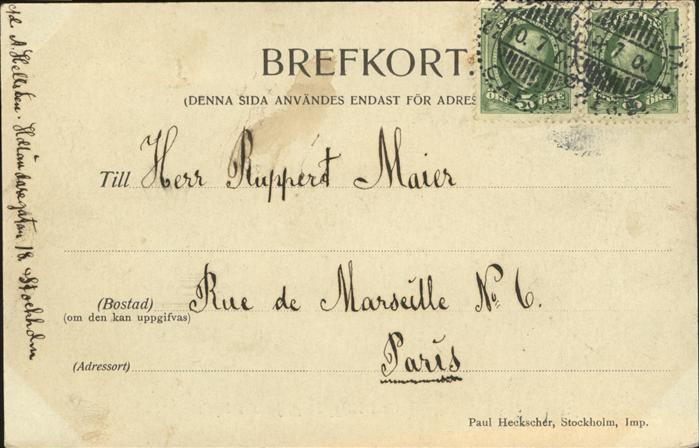 BREFKORT.
(DENNA SIDA ANVÄNDES ENDAST FÖR ADRES
Till Herr Ruppert Maier
(Bostad) Rue de Marseille No 6.
(om den kan uppgifvas)
(Adressort) Paris
Paul Heckscher, Stockholm, Imp.
A. Hellsten. Holländaregatan 18 Stockholm
5 ÖRE